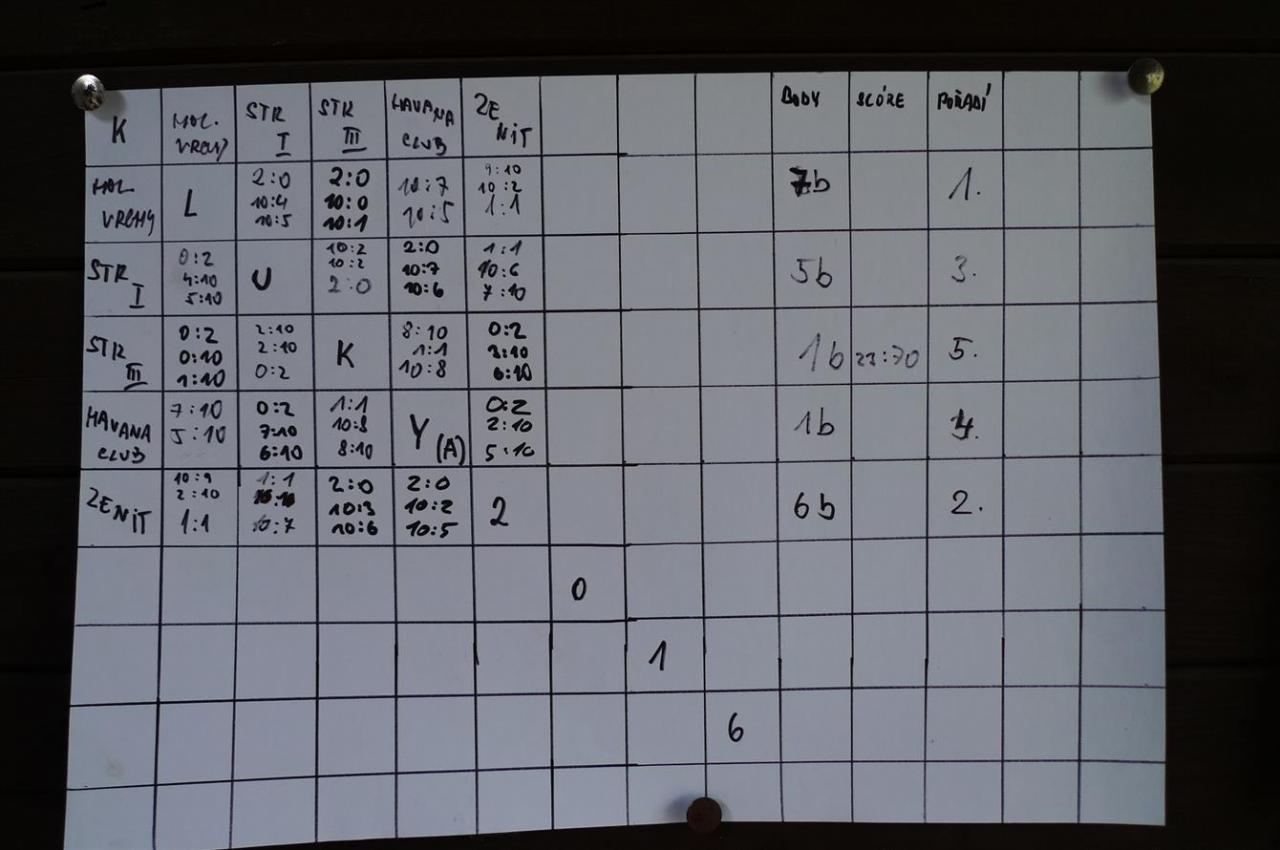 K MOL. VRCHY STR I STR III HAVANA CLUB ZE NIT BODY SCÓRE POŘADÍ
MOL VRCHY L 2:0 10:4 10:5 2:0 10:0 10:1 10:7 10:5 9:10 10:2 1:1 7b 1.
STR I 0:2 4:10 5:10 U 10:2 10:2 2:0 2:0 10:7 10:6 1:1 10:6 7:10 5b 3.
STR III 0:2 0:10 1:10 2:10 2:10 0:2 K 8:10 1:1 10:8 0:2 3:10 6:10 1b 5.
HAVANA CLUB 7:10 5:10 0:2 7:10 6:10 1:1 10:8 8:10 Y (A) 0:2 2:10 5:10 1b 4.
ZENIT 10:9 2:10 1:1 1:1 10:7 2:0 10:3 10:6 2:0 10:2 10:5 2 6b 2.
0
1
6